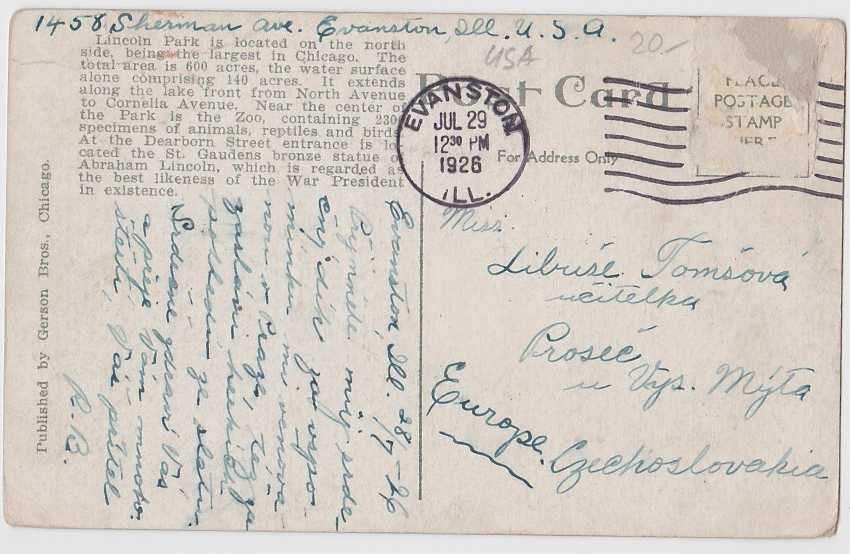 1458 Sherman ave. Evanston, Ill. U.S.A.
USA
20.-
Lincoln Park is located on the north
side, being the largest in Chicago. The
total area is 600 acres, the water surface
alone comprising 140 acres. It extends
along the lake front from North Avenue
to Cornelia Avenue. Near the center of
the Park is the Zoo, containing 230
specimens of animals, reptiles and birds
At the Dearborn Street entrance is lo-
cated the St. Gaudens bronze statue of
Abraham Lincoln, which is regarded as
the best likeness of the War President
in existence.
Post Card
For Address Only
PLACE
POSTAGE
STAMP
HERE
EVANSTON
JUL 29
12 30 PM
1926
ILL.
Published by Gerson Bros., Chicago.
Evanston Ill. 28/7 - 26
Přijměte můj srde-
čný dík za vzpo-
mínku mi věnova
nou v Praze, též za
zaslání
Srdečně zdraví Vás
a přeje Vám mnoho
štěstí, Váš přítel
R. B.
Miss.
Libuše Tomšová
učitelka
Proseč
u Vys. Mýta
Europe. Czechoslovakia